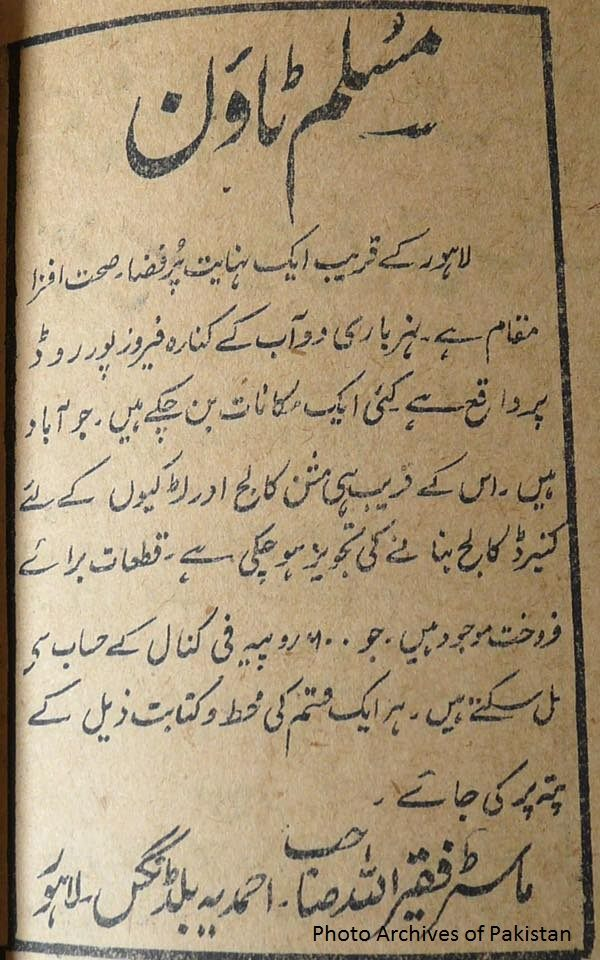 مسلم ٹاؤن
لاہور کے قریب ایک نہایت پُرفضا۔ صحت افزا
مقام ہے۔ نہر باری دوآب کے کنارہ فیروز پور روڈ
پر واقع ہے کئی ایک مکانات بن چکے ہیں۔ جو آباد
ہیں۔ اس کے قریب ہی مشن کالج اور لڑکیوں کے لئے
کنیرڈ کالج بنانے کی تجویز ہو چکی ہے۔ قطعات برائے
فروخت موجود ہیں۔ جو ۶۰۰ روپیہ فی کنال کے حساب سے
مل سکتے ہیں۔ ہر ایک قسم کی خط و کتابت ذیل کے
پتہ پر کی جائے۔
ماسٹر فقیر اللہ صاحب۔ احمدیہ بلڈنگس۔ لاہور
Photo Archives of Pakistan